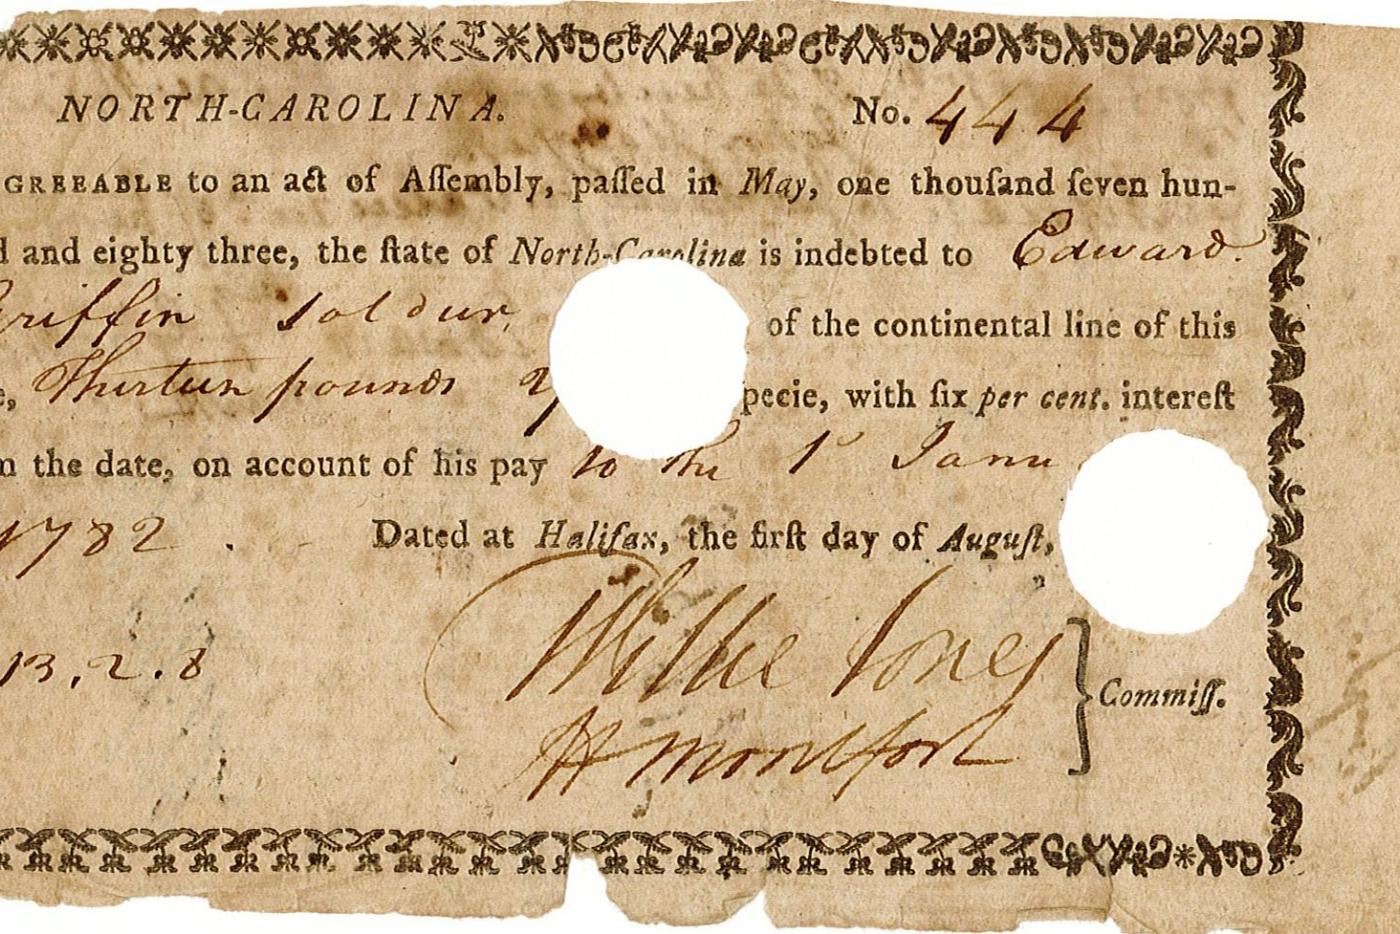 NORTH-CAROLINA. No. 444
GREEABLE to an act of Aſſembly, paſſed in May, one thouſand ſeven hun-
d and eighty three, the ſtate of North-Carolina is indebted to Edward
riffin soldier, of the continental line of this
Thirteen pounds pecie, with ſix per cent. intereſt
the date, on account of his pay to the 1st Janu
1782. Dated at Halifax, the firſt day of Auguſt,
Willie Jones
13.2.8 Commiſſ.
H Montfort